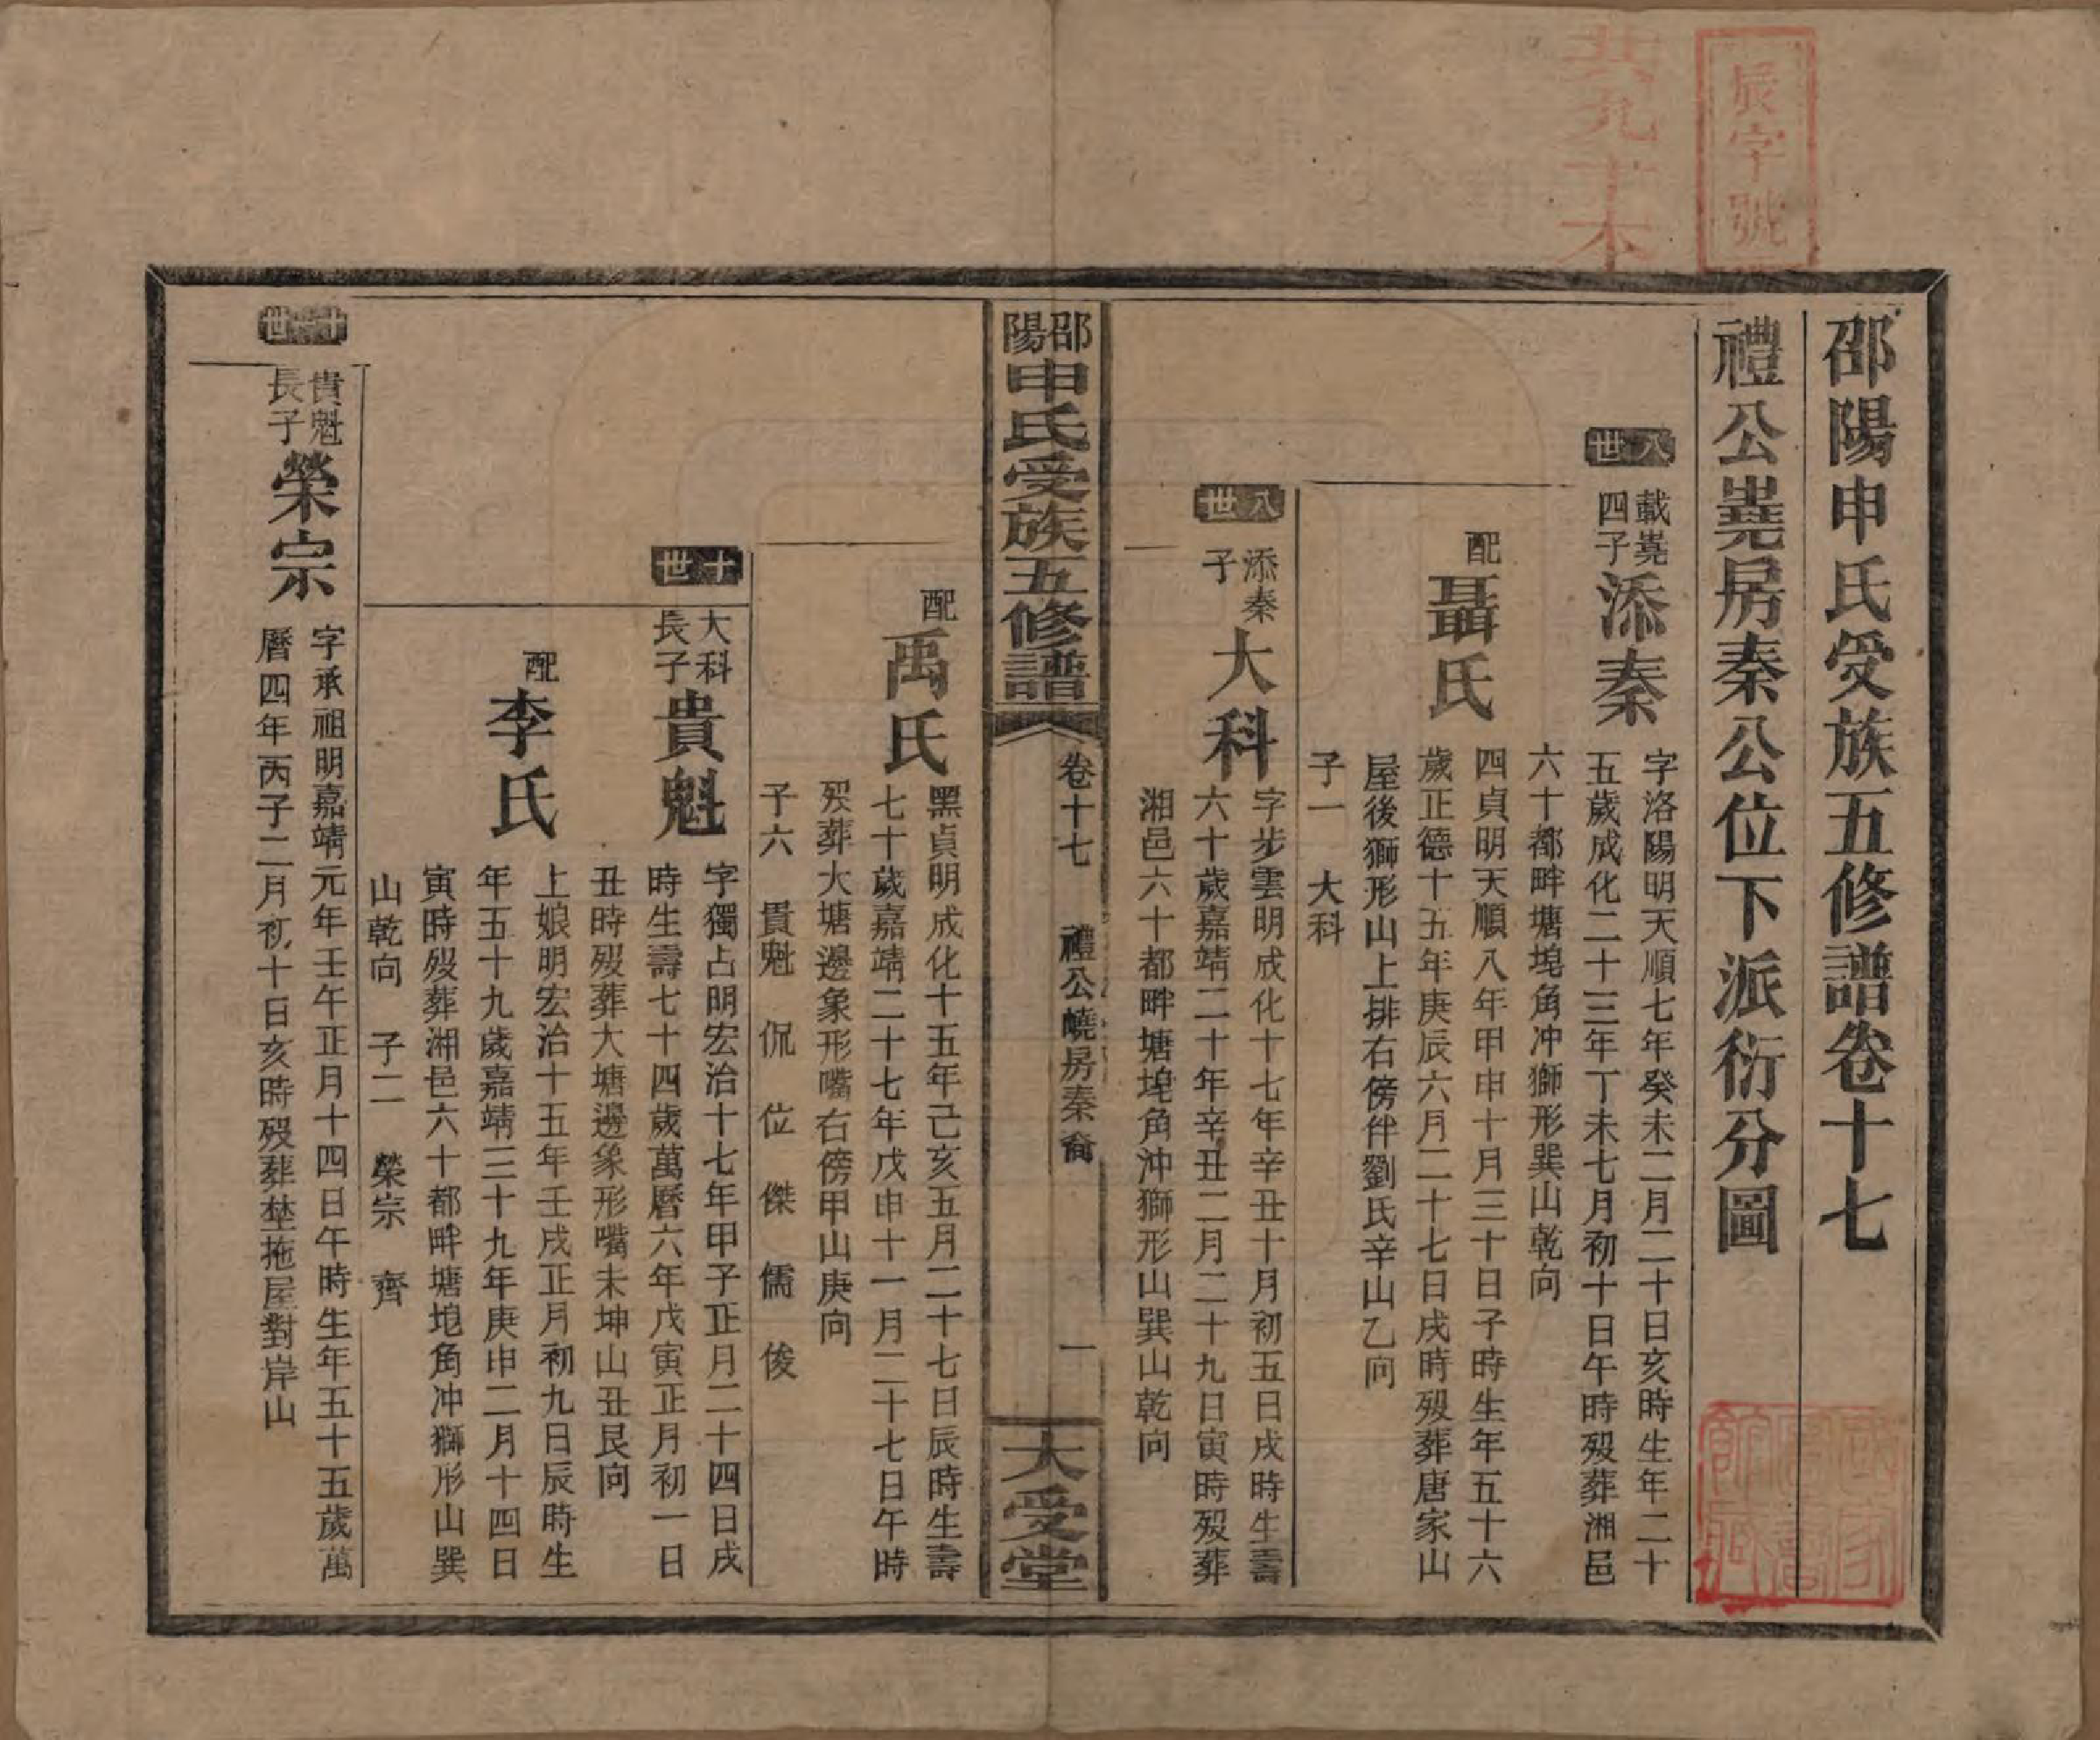 辰字號
共九十本
邵陽申氏受族五修譜卷十七
禮公嶤房秦公位下派衍分圖
八世
載嶤四子
添秦
字洛陽明天順七年癸未二月二十日亥時生年二十
五歲成化二十三年丁未七月初十日午時歿葬湘邑
六十都畔塘塊角冲獅形巽山乾向
配
聶氏
四貞明天順八年甲申十月三十日子時生年五十六
歲正德十五年庚辰六月二十七日戌時歿葬唐家山
屋後獅形山上排右傍伴劉氏辛山乙向
子一 大科
八世
添秦子
大科
字步雲明成化十七年辛丑十月初五日戌時生壽
六十歲嘉靖二十年辛丑二月二十九日寅時歿葬
湘邑六十都畔塘塊角沖獅形山巽山乾向
邵陽申氏受族五修譜
卷十七 禮公嶢房秦裔
一
大受堂
配
禹氏
黑貞明成化十五年己亥五月二十七日辰時生壽
七十歲嘉靖二十七年戊申十一月二十七日午時
歿葬大塘邊象形嘴右傍甲山庚向
子六 貴魁 侃 位 傑 儒 俊
十世
大科長子
貴魁
字獨占明宏治十七年甲子正月二十四日戌
時生壽七十四歲萬曆六年戊寅正月初一日
丑時歿葬大塘邊象形嘴未坤山丑艮向
配
李氏
上娘明宏治十五年壬戌正月初九日辰時生
年五十九歲嘉靖三十九年庚申二月十四日
寅時歿葬湘邑六十都畔塘塊角冲獅形山巽
山乾向 子二 榮宗 齊
十一世
貴魁長子
榮宗
字承祖明嘉靖元年壬午正月十四日午時生年五十五歲萬
曆四年丙子二月初十日亥時歿葬埜拖屋對岸山